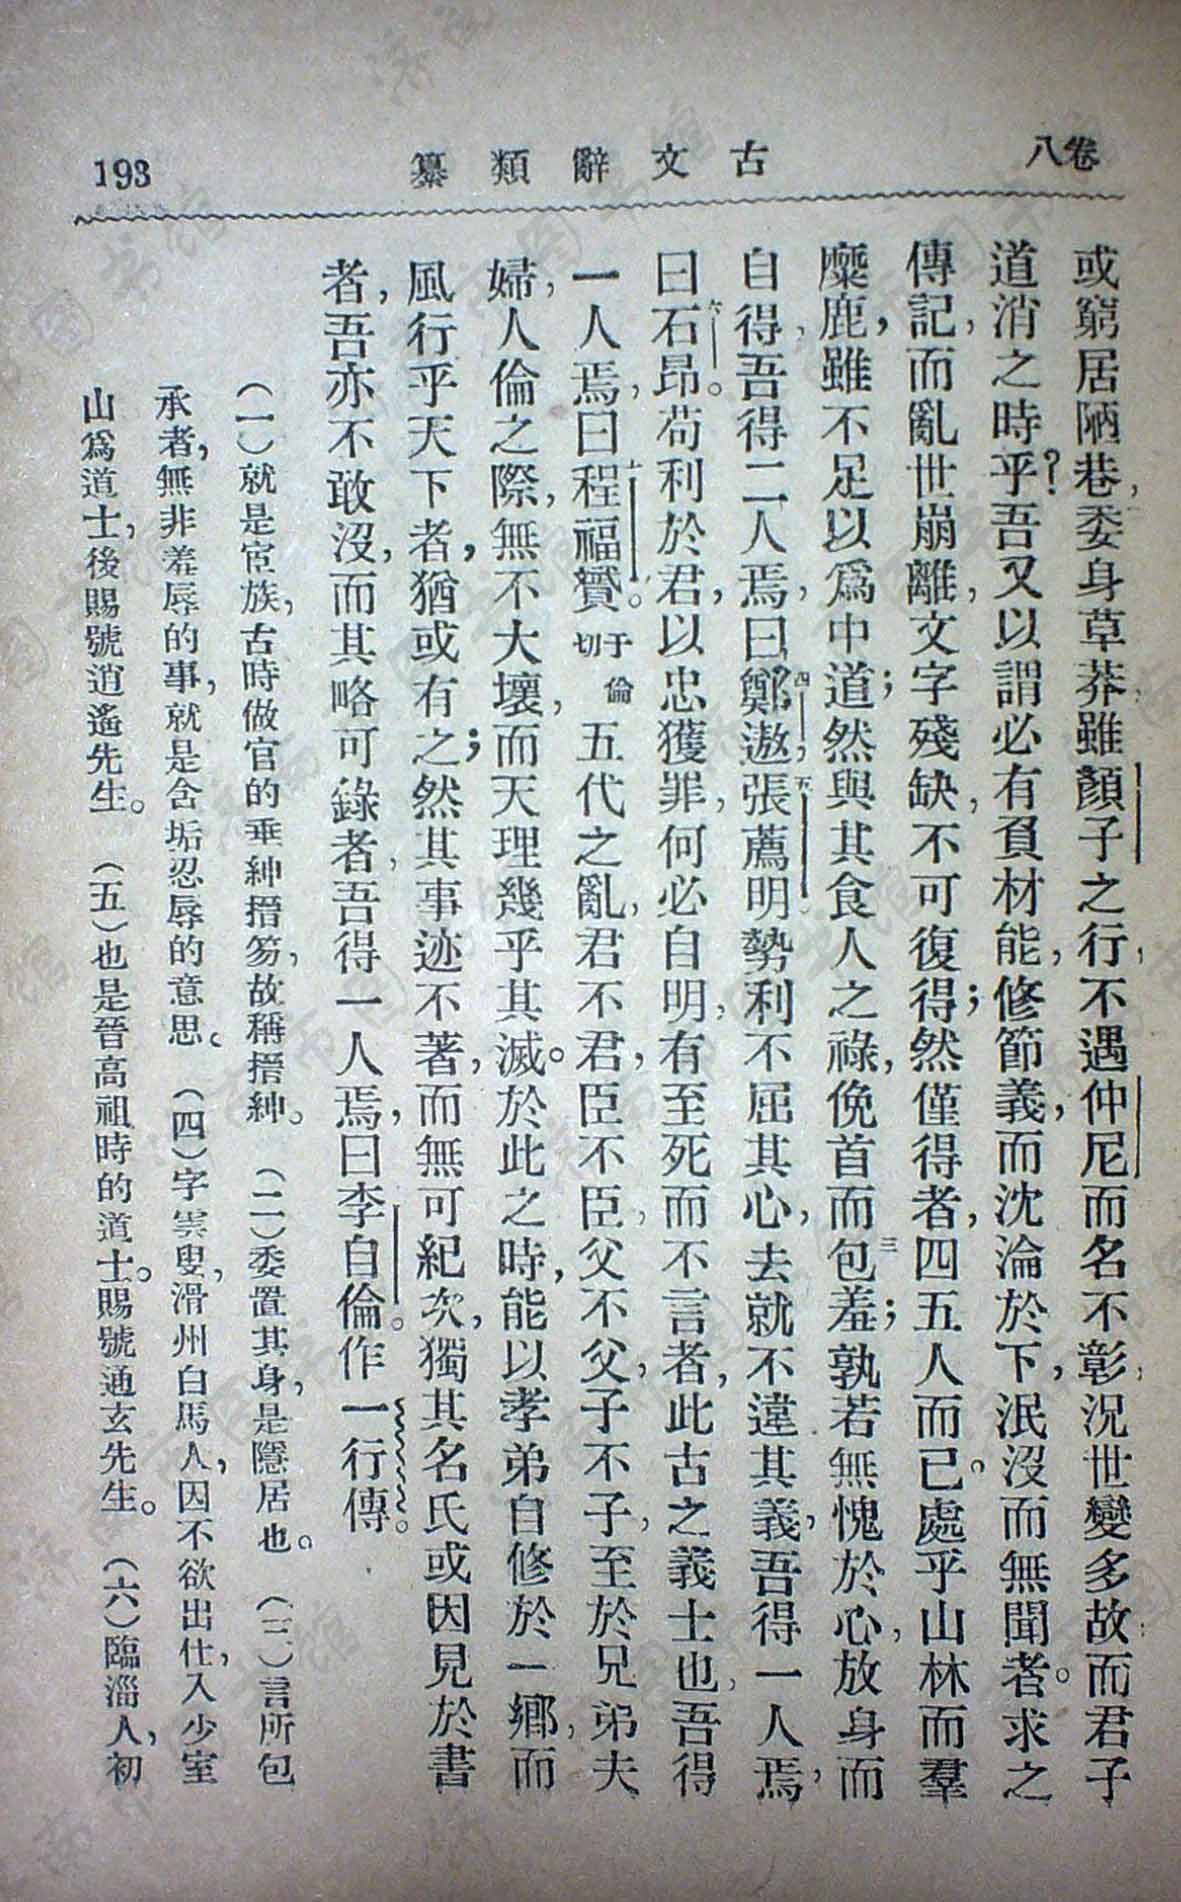 卷八
古文辭類纂
193
或窮居陋巷，委身草莽，雖顏子之行，不遇仲尼而名不彰，況世變多故，而君子
道消之時乎？吾又以謂必有負材能，修節義，而沈淪於下，泯沒而無聞者。求之
傳記，而亂世崩離，文字殘缺，不可復得；然僅得者，四五人而已。處乎山林而羣
麋鹿，雖不足以爲中道；然與其食人之祿，俛首而包羞；三孰若無愧於心，放身而
自得，吾得二人焉，曰鄭遨，四張薦明五勢利不屈其心，去就不違其義，吾得一人焉，
曰石昂。六苟利於君，以忠獲罪，何必自明，有至死而不言者，此古之義士也，吾得
一人焉，曰程福贇。七于倫切五代之亂，君不君，臣不臣，父不父，子不子，至於兄弟夫
婦，人倫之際，無不大壞，而天理幾乎其滅。於此之時，能以孝弟自修於一鄉，而
風行乎天下者，猶或有之；然其事迹不著，而無可紀次，獨其名氏或因見於書
者，吾亦不敢沒，而其略可錄者，吾得一人焉，曰李自倫。作一行傳。
（一）就是宦族，古時做官的垂紳搢笏，故稱搢紳。（二）委置其身，是隱居也。（三）言所包
承者，無非羞辱的事，就是含垢忍辱的意思。（四）字雲叟，滑州白馬人，因不欲出仕，入少室
山爲道士，後賜號逍遙先生。（五）也是晉高祖時的道士。賜號通玄先生。（六）臨淄人，初